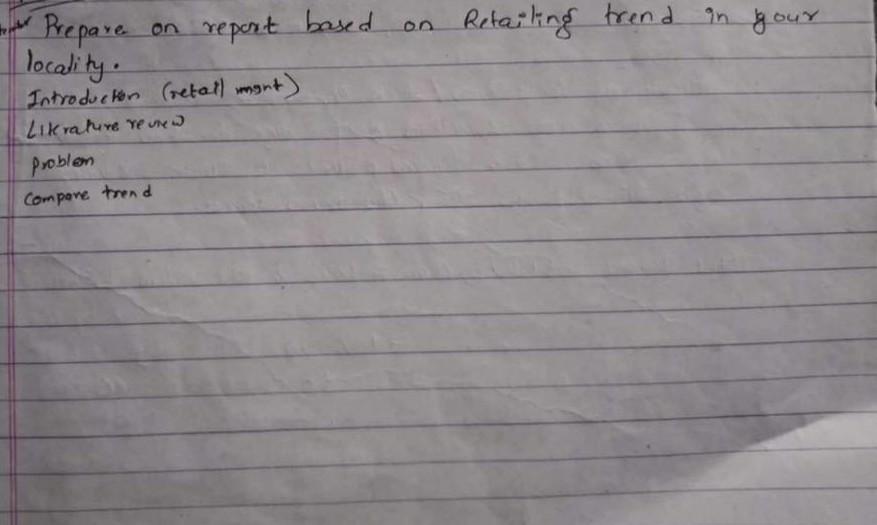 Prepare on report based on Retailing trend in your
locality.
Introduction (retail mgnt)
Literature review
problem
compare trend